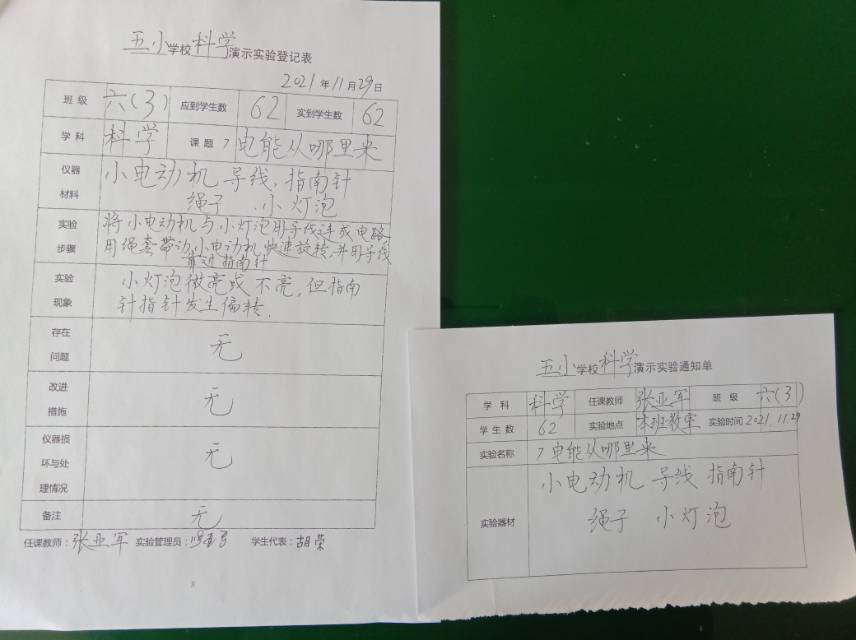 五小学校科学演示实验登记表
2021年11月29日
班级 六(3) 应到学生数 62 实到学生数 62
学科 科学 课题 7 电能从哪里来
仪器材料 小电动机 导线、指南针
绳子、小灯泡
实验步骤 将小电动机与小灯泡用导线连成电路
用绳套带动小电动机快速旋转,并用导线
靠近指南针
实验现象 小灯泡微亮或不亮,但指南
针指针发生偏转.
存在问题 无
改进措施 无
仪器损坏与处理情况 无
备注 无
任课教师:张亚军 实验管理员: 学生代表:胡荣
五小学校科学演示实验通知单
学科 科学 任课教师 张亚军 班级 六(3)
学生数 62 实验地点 本班教室 实验时间 2021.11.29
实验名称 7 电能从哪里来
实验器材 小电动机 导线 指南针
绳子 小灯泡